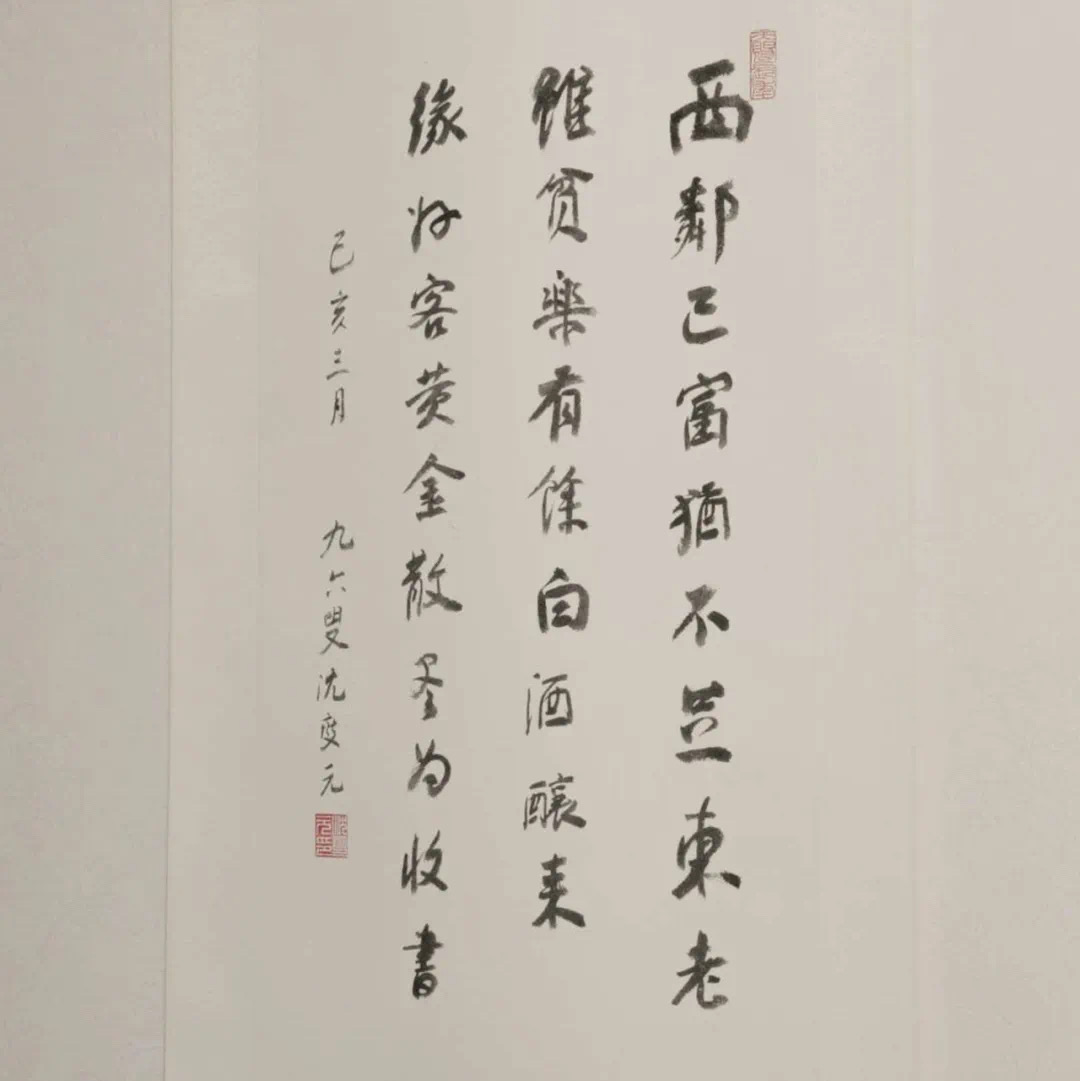 西鄰已富猶不足東老
雖貧樂有餘白酒釀来
緣好客黄金散盡為收書
己亥三月 九六叟沈燮元